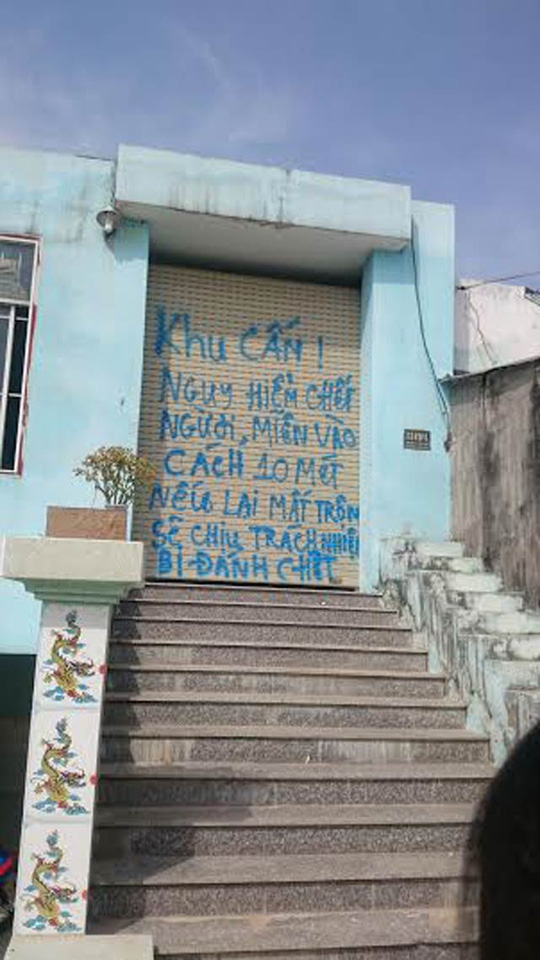 Khu CẤM !
NGUY HIỂM CHẾT
NGƯỜI, MIỄN VÀO
CÁCH 10 MÉT
NẾU LAI MẤT TRỘM
SẼ CHIU TRÁCH NHIỆM
BỊ ĐÁNH CHẾT